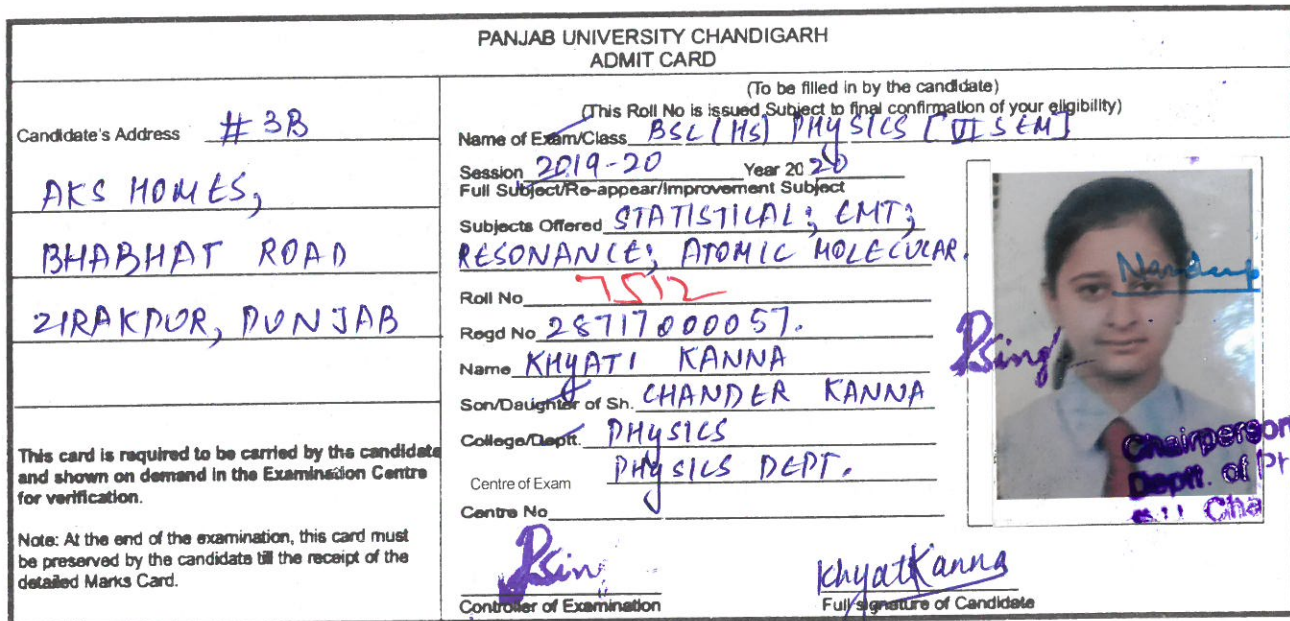 PANJAB UNIVERSITY CHANDIGARH
ADMIT CARD
Candidate's Address # 3B
AKS HOMES,
BHABHAT ROAD
ZIRAKPUR, PUNJAB
This card is required to be carried by the candidate
and shown on demand in the Examination Centre
for verification.
Note: At the end of the examination, this card must
be preserved by the candidate till the receipt of the
detailed Marks Card.
(To be filled in by the candidate)
(This Roll No is issued Subject to final confirmation of your eligibility)
Name of Exam/Class BSC (HS) PHYSICS [VI SEM]
Session 2019-20 Year 2020
Full Subject/Re-appear/Improvement Subject
Subjects Offered STATISTICAL; EMT;
RESONANCE; ATOMIC MOLECULAR.
Roll No 7512
Regd No 28717000057.
Name KHYATI KANNA
Son/Daughter of Sh. CHANDER KANNA
College/Deptt. PHYSICS
Centre of Exam PHYSICS DEPT.
Centre No
Controller of Examination
KhyatKanna
Full signature of Candidate
Chairperson
Deptt. of
Cha